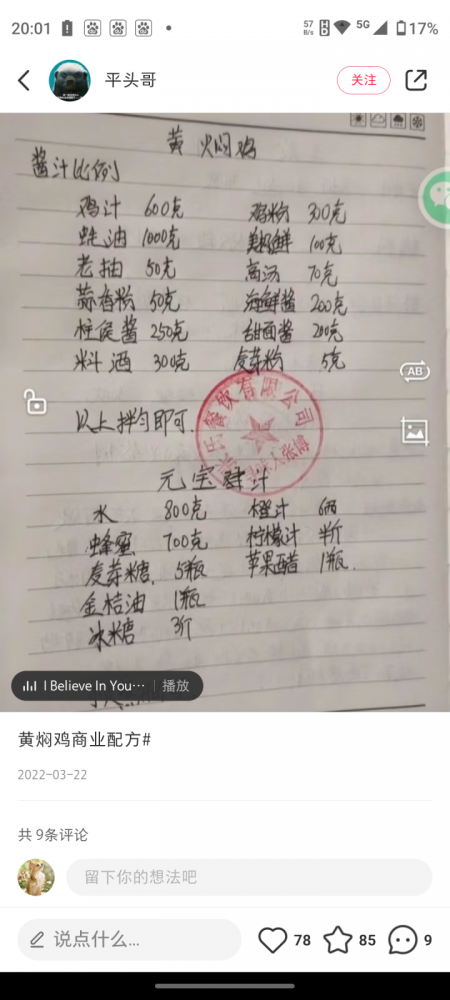 20:01 57 B/s HD 5G 17%
平头哥 关注
黄焖鸡
酱汁比例
鸡汁 600克 鸡粉 300克
蚝油 1000克 美极鲜 100克
老抽 50克 高汤 70克
蒜香粉 50克 海鲜酱 200克
柱侯酱 250克 甜面酱 200克
料酒 300克 麦芽粉 5克
以上拌匀即可.
餐饮有限公司
元宝 汁
水 800克 橙汁 6两
蜂蜜 700克 柠檬汁 半斤
麦芽糖. 5瓶 苹果醋 1瓶.
金桔油 1瓶
冰糖 3斤
AB
I Believe In You… 播放
黄焖鸡商业配方#
2022-03-22
共 9条评论
留下你的想法吧
说点什么... 78 85 9